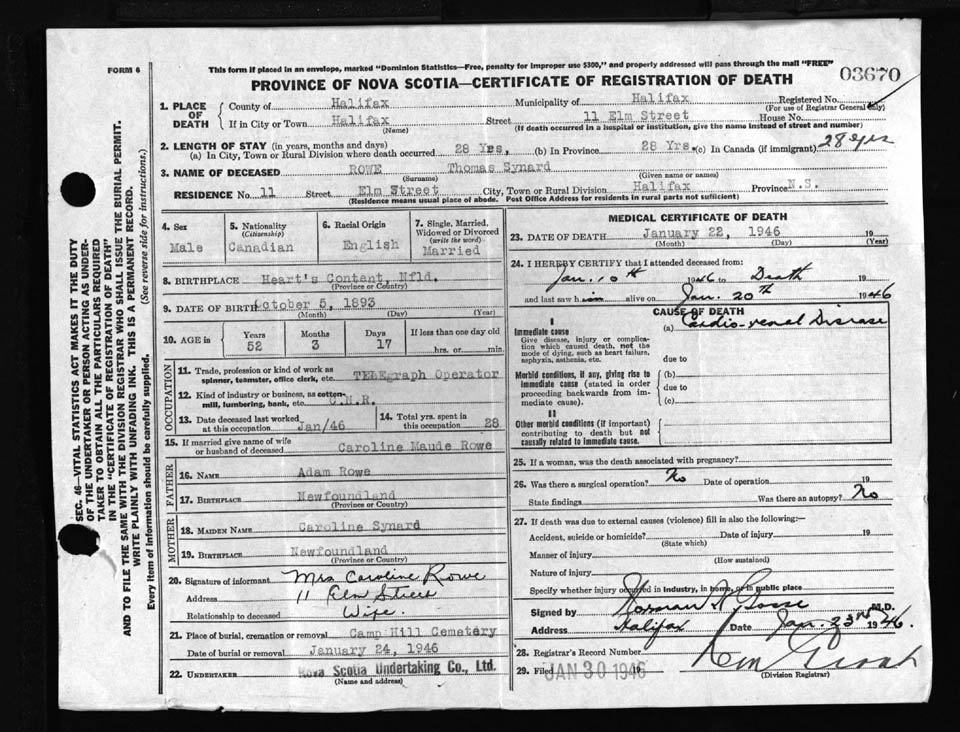 FORM 6
This form if placed in an envelope, marked "Dominion Statistics—Free, penalty for improper use $300," and properly addressed will pass through the mail "FREE"
PROVINCE OF NOVA SCOTIA—CERTIFICATE OF REGISTRATION OF DEATH
03670
1. PLACE OF DEATH
County of Halifax Municipality of Halifax Registered No.
(For use of Registrar General only)
If in City or Town Halifax Street 11 Elm Street House No.
(Name) (If death occurred in a hospital or institution, give the name instead of street and number)
2. LENGTH OF STAY (in years, months and days)
(a) In City, Town or Rural Division where death occurred 28 Yrs, (b) In Province 28 Yrs. (c) In Canada (if immigrant) 28 yrs
3. NAME OF DECEASED ROWE Thomas Synard
(Surname) (Given name or names)
RESIDENCE No. 11 Street Elm Street City, Town or Rural Division Halifax Province N.S.
(Residence means usual place of abode. Post Office Address for residents in rural parts not sufficient)
4. Sex
Male
5. Nationality
(Citizenship)
Canadian
6. Racial Origin
English
7. Single, Married, Widowed or Divorced
(write the word)
Married
8. BIRTHPLACE Heart's Content, Nfld.
(Province or Country)
9. DATE OF BIRTH October 5, 1893
(Month) (Day) (Year)
10. AGE in
Years Months Days If less than one day old
52 3 17 hrs. or min.
OCCUPATION
11. Trade, profession or kind of work as
spinner, teamster, office clerk, etc. TELEgraph Operator
12. Kind of industry or business, as cotton-
mill, lumbering, bank, etc. C.N.R.
13. Date deceased last worked
at this occupation Jan/46
14. Total yrs. spent in
this occupation 28
15. If married give name of wife
or husband of deceased Caroline Maude Rowe
FATHER
16. Name Adam Rowe
17. Birthplace Newfoundland
(Province or Country)
MOTHER
18. Maiden Name Caroline Synard
19. Birthplace Newfoundland
(Province or Country)
20. Signature of informant Mrs Caroline Rowe
Address 11 Elm Street
Relationship to deceased Wife.
21. Place of burial, cremation or removal Camp Hill Cemetery
Date of burial or removal January 24, 1946
22. Undertaker Nova Scotia Undertaking Co., Ltd.
(Name and address)
MEDICAL CERTIFICATE OF DEATH
23. DATE OF DEATH January 22, 1946 19
(Month) (Day) (Year)
24. I HEREBY CERTIFY that I attended deceased from:
Jan. 10th 1946 to Death 19
and last saw him alive on Jan. 20th 1946
CAUSE OF DEATH
I
Immediate cause
Give disease, injury or complica-
tion which caused death, not the
mode of dying, such as heart failure,
asphyxia, asthenia, etc.
(a) Cardio-renal Disease
due to
Morbid conditions, if any, giving rise to
immediate cause (stated in order
proceeding backwards from im-
mediate cause).
(b)
due to
(c)
II
Other morbid conditions (if important)
contributing to death but not
causally related to immediate cause.
25. If a woman, was the death associated with pregnancy?
26. Was there a surgical operation? No Date of operation 19
State findings Was there an autopsy? No
27. If death was due to external causes (violence) fill in also the following:—
Accident, suicide or homicide? Date of injury 19
(State which)
Manner of injury
(How sustained)
Nature of injury
Specify whether injury occurred in industry, in home, or in public place
Signed by Norman A Gosse M.D.
Address Halifax Date Jan. 23rd 1946.
28. Registrar's Record Number
29. Filed JAN 30 1946 19
(Division Registrar)
SEC. 46—VITAL STATISTICS ACT MAKES IT THE DUTY
OF THE UNDERTAKER OR PERSON ACTING AS UNDER-
TAKER TO OBTAIN ALL THE PARTICULARS REQUIRED
IN THE "CERTIFICATE OF REGISTRATION OF DEATH"
AND TO FILE THE SAME WITH THE DIVISION REGISTRAR WHO SHALL ISSUE THE BURIAL PERMIT.
WRITE PLAINLY WITH UNFADING INK. THIS IS A PERMANENT RECORD.
Every item of information should be carefully supplied. (See reverse side for instructions.)